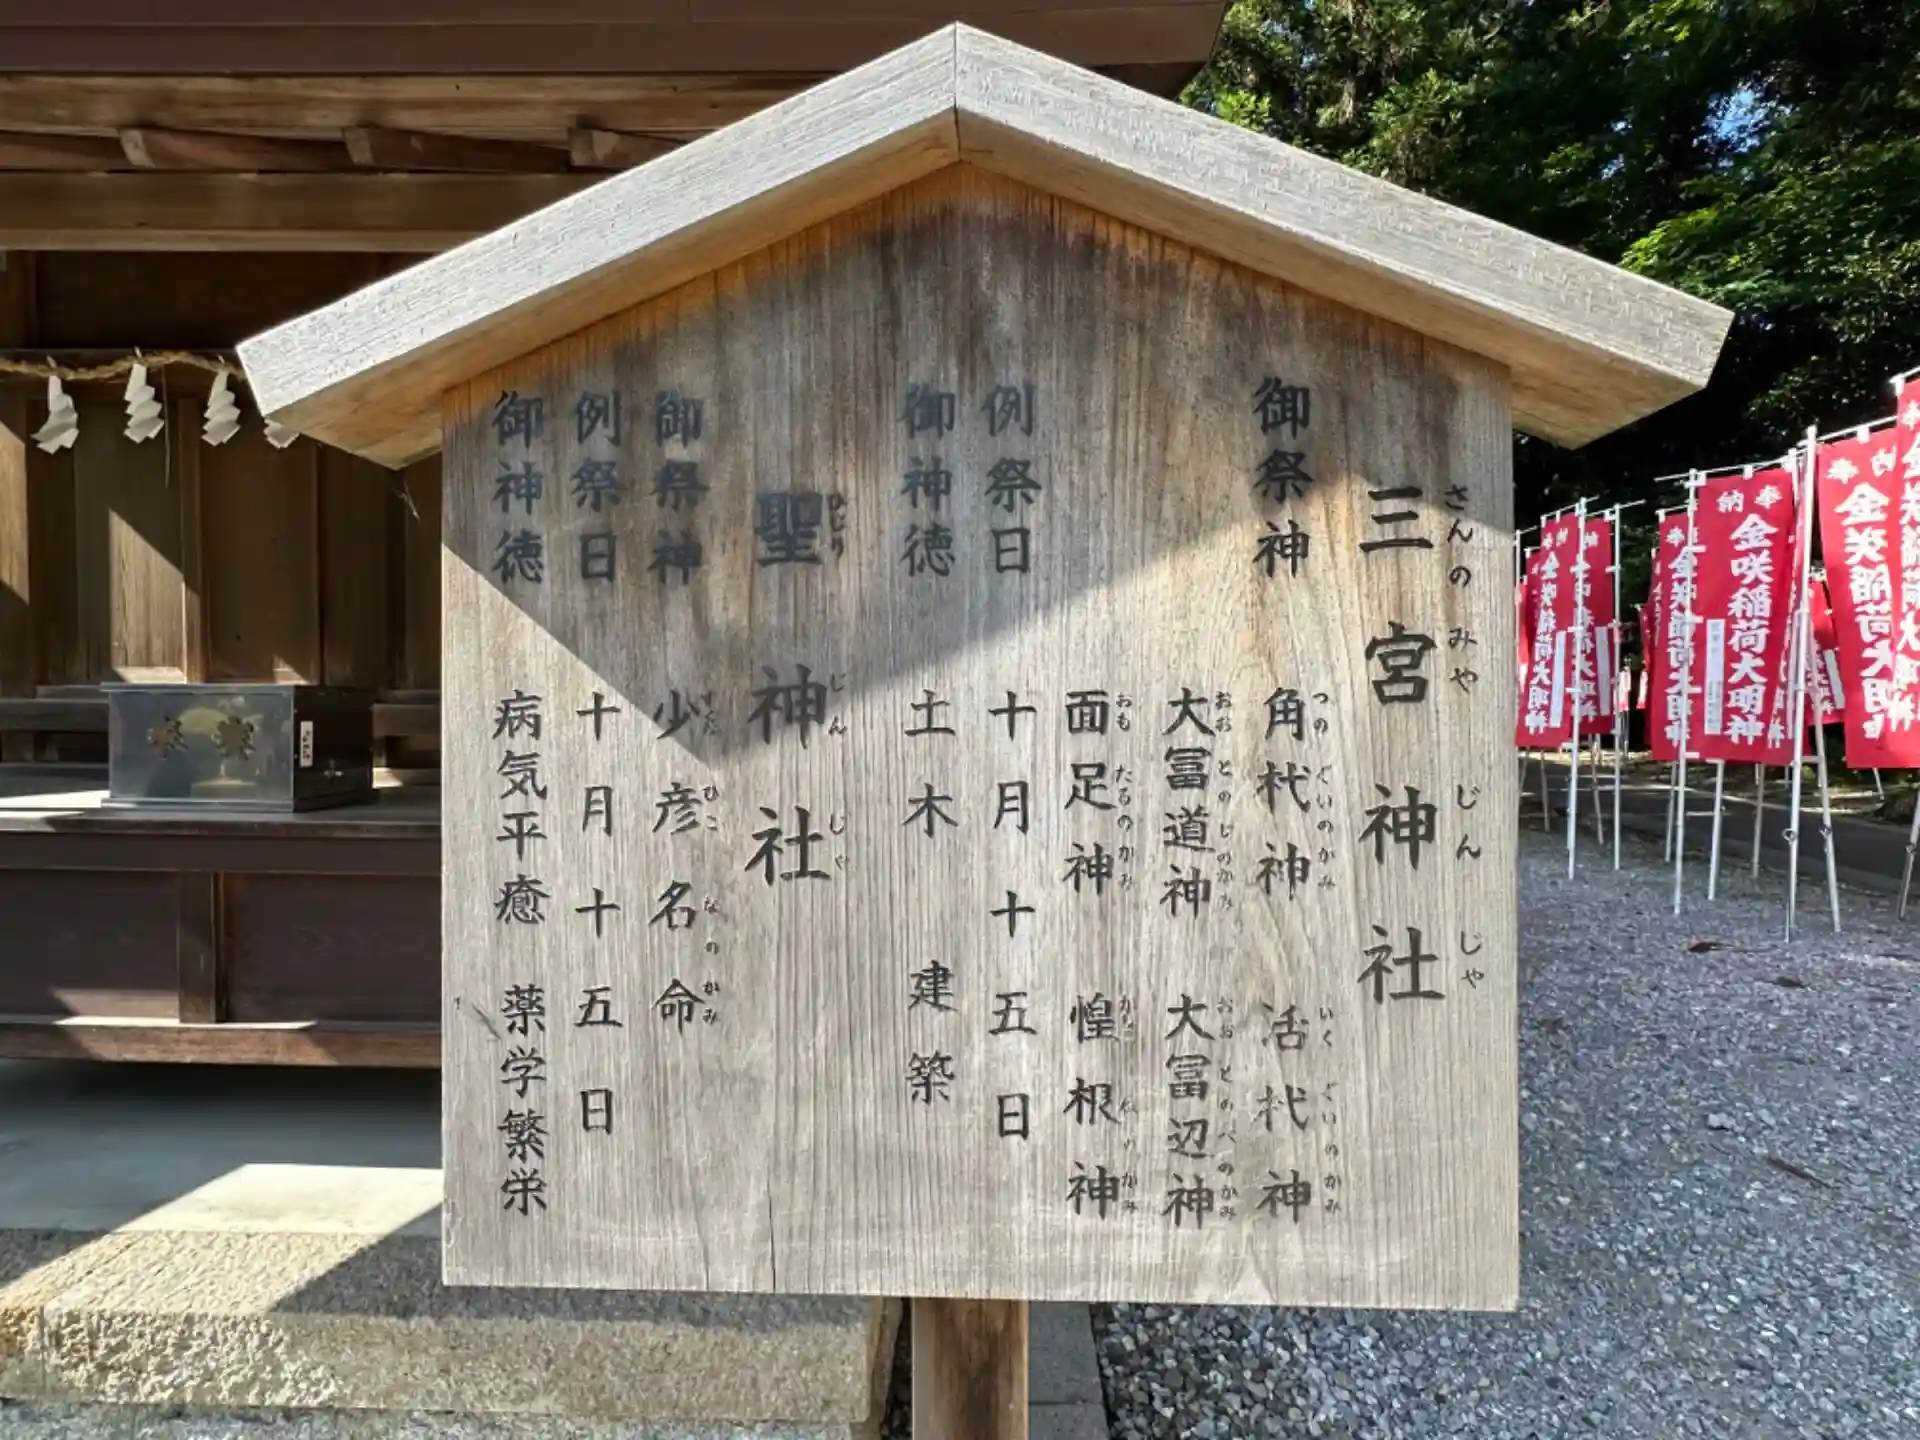 三宮神社
さんのみやじんじゃ
御祭神 角杙神 活杙神
つのぐいのかみ いくぐいのかみ
大冨道神 大冨辺神
おおとのじのかみ おおとのべのかみ
面足神 惶根神
おもたるのかみ かしこねのかみ
例祭日 十月十五日
御神徳 土木 建築
聖神社
ひじりじんじゃ
御祭神 少彦名命
すくなひこなのかみ
例祭日 十月十五日
御神徳 病気平癒 薬学繁栄
奉納
金咲稲荷大明神
奉納
金咲稲荷大明神